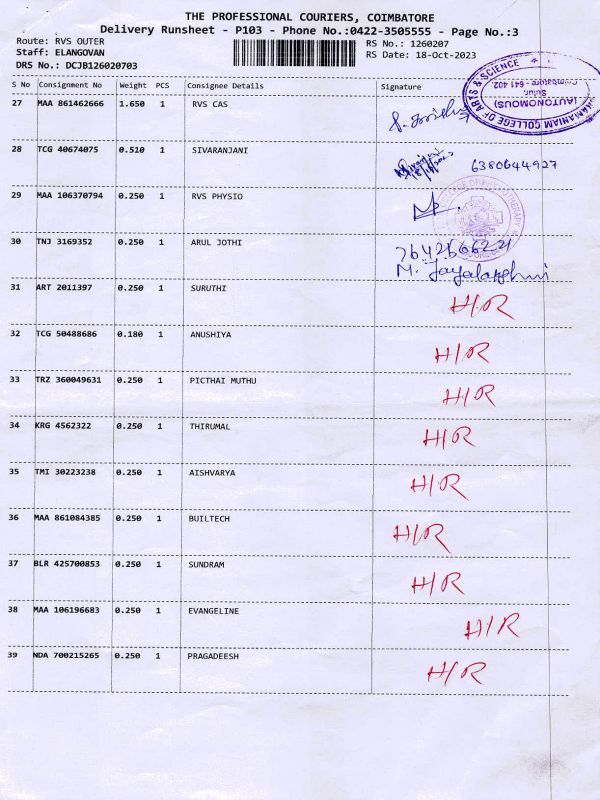 THE PROFESSIONAL COURIERS, COIMBATORE
Delivery Runsheet - P103 - Phone No.:0422-3505555 - Page No.:3
Route: RVS OUTER RS No.: 1260207
Staff: ELANGOVAN RS Date: 18-Oct-2023
DRS No.: DCJB126020703
S No Consignment No Weight PCS Consignee Details Signature
27 MAA 861462666 1.650 1 RVS CAS
COLLEGE OF ARTS & SCIENCE
(AUTONOMOUS)
Sulur,
Coimbatore - 641 402
28 TCG 40674075 0.510 1 SIVARANJANI 6380644927
29 MAA 106370794 0.250 1 RVS PHYSIO
30 TNJ 3169352 0.250 1 ARUL JOTHI
31 ART 2011397 0.250 1 SURUTHI H/R
32 TCG 50488686 0.180 1 ANUSHIYA H/R
33 TRZ 360049631 0.250 1 PICTHAI MUTHU H/R
34 KRG 4562322 0.250 1 THIRUMAL H/R
35 TMI 30223238 0.250 1 AISHVARYA H/R
36 MAA 861084385 0.250 1 BUILTECH H/R
37 BLR 425700853 0.250 1 SUNDRAM H/R
38 MAA 106196683 0.250 1 EVANGELINE H/R
39 NDA 700215265 0.250 1 PRAGADEESH H/R